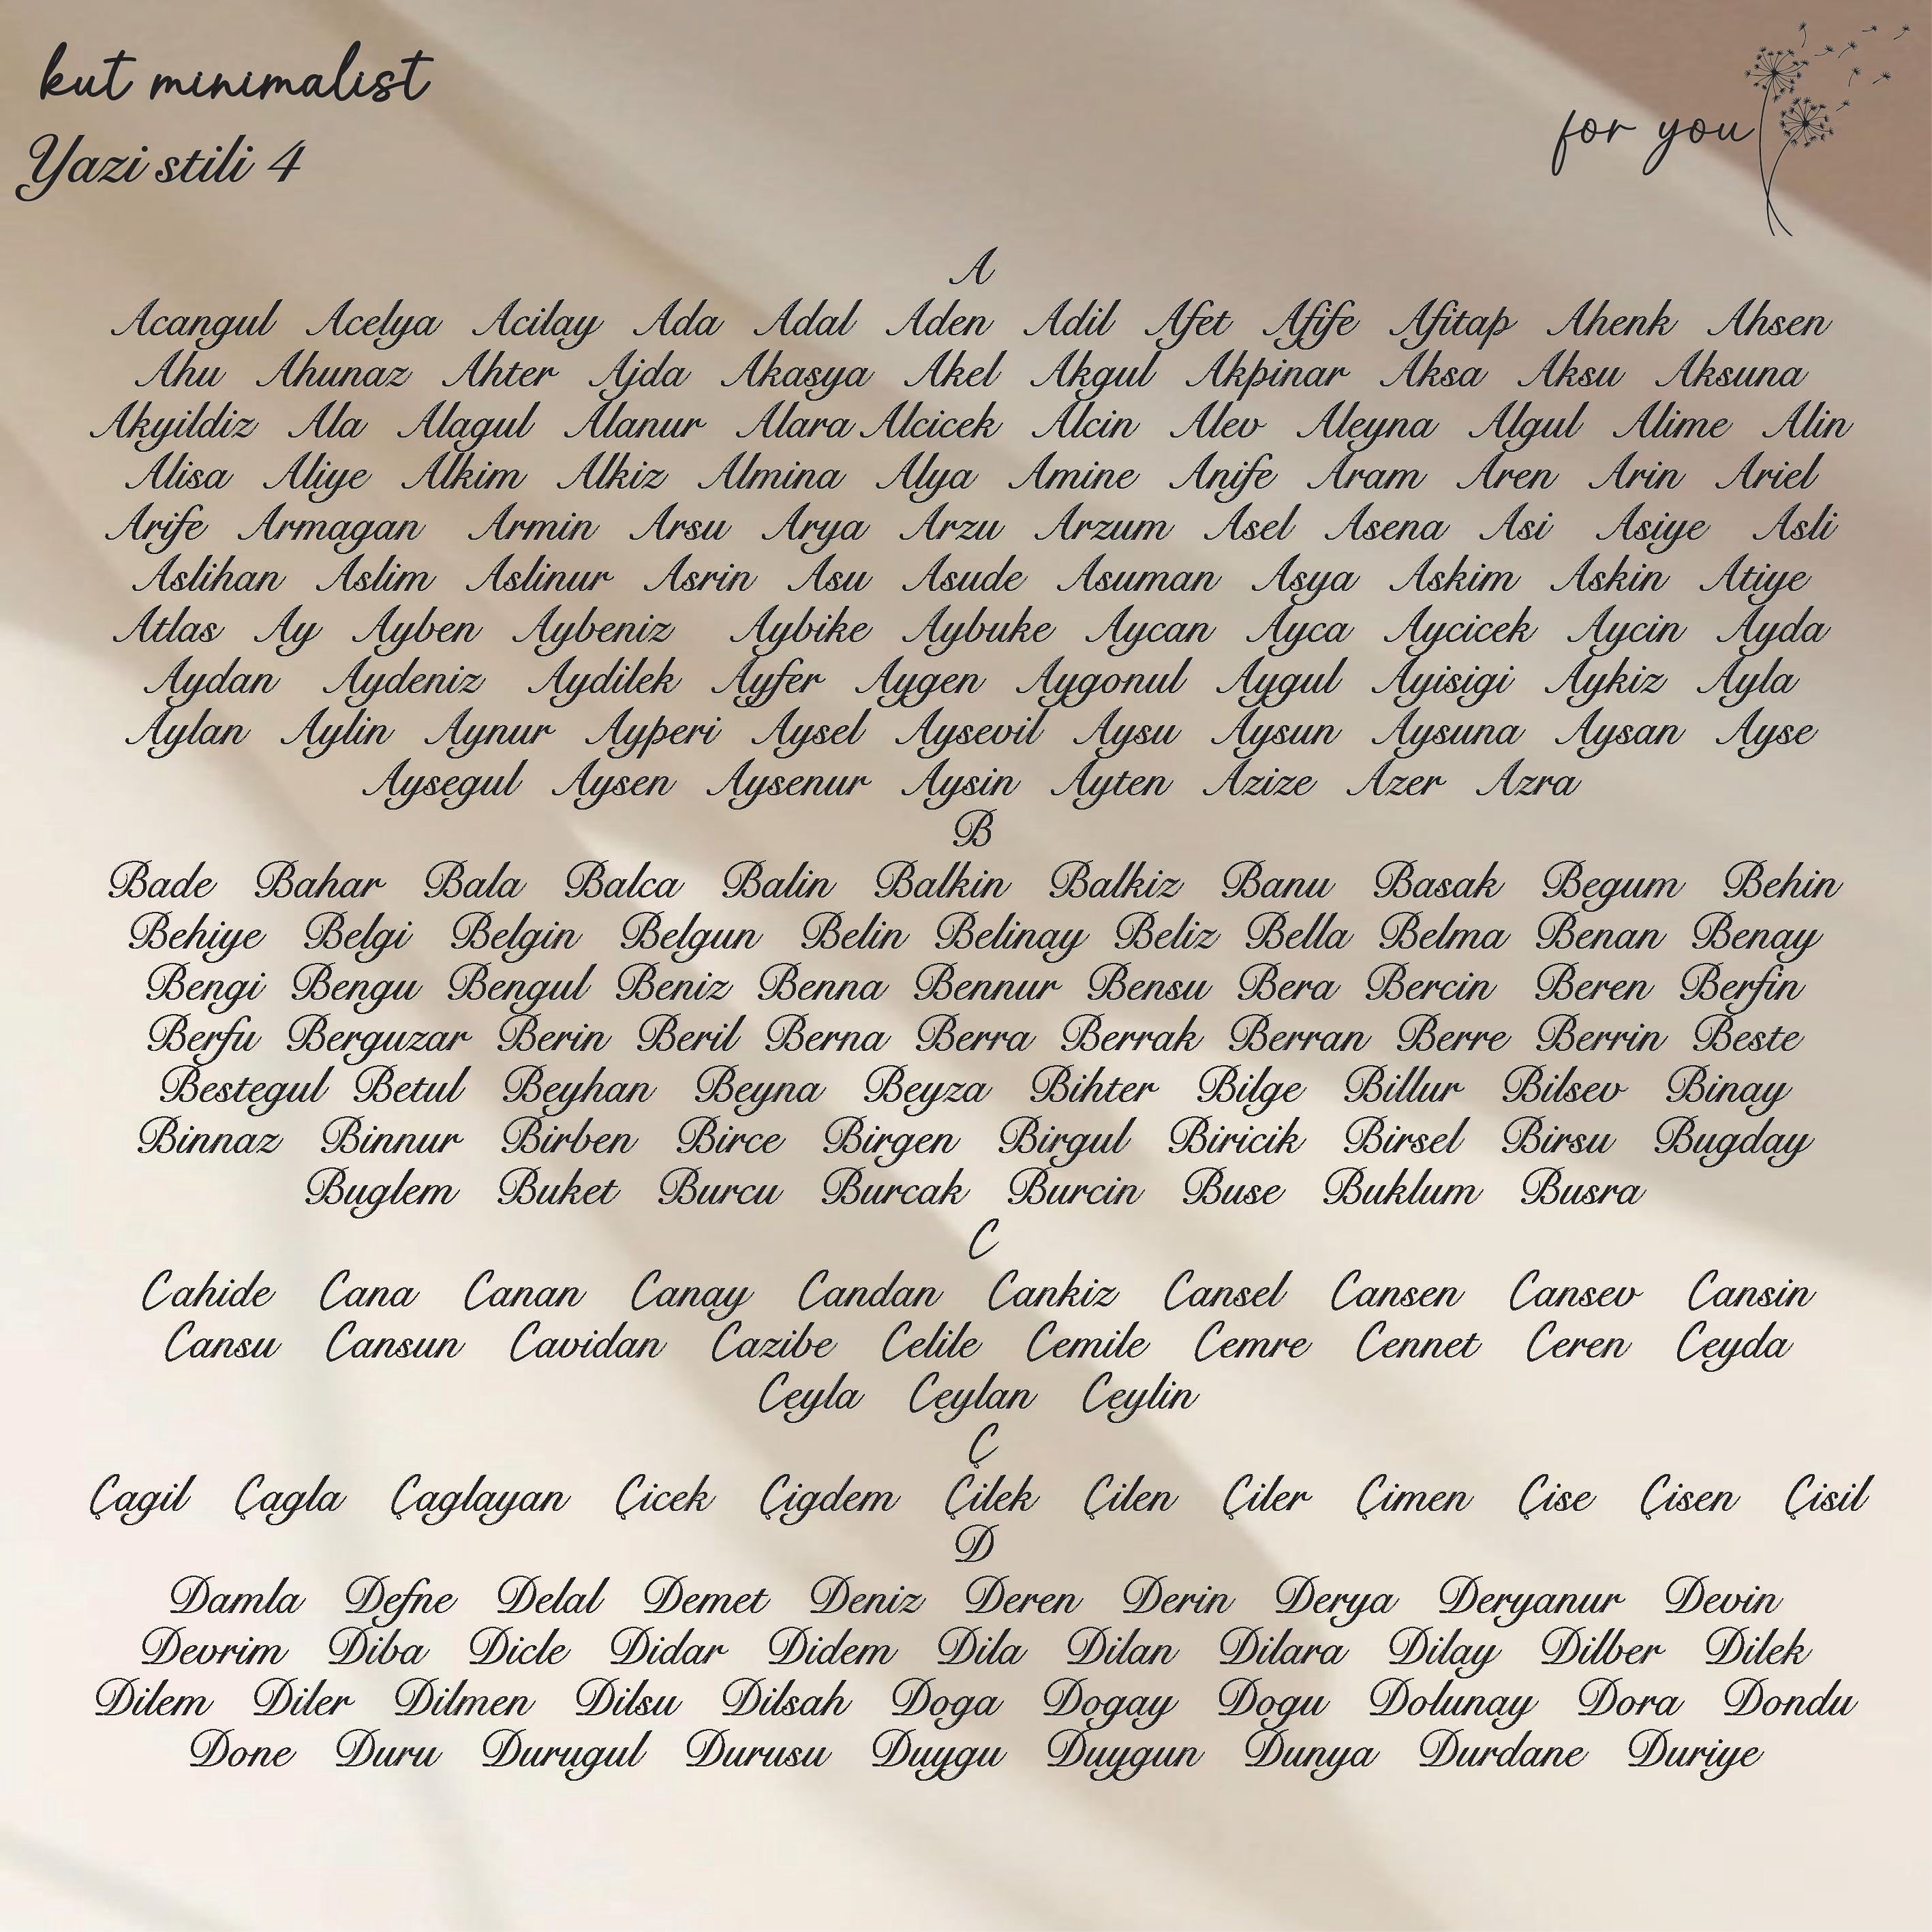 kut minimalist
Yazi stili 4
for you
A
Acangul Acelya Acilay Ada Adal Aden Adil Afet Afife Afitap Ahenk Ahsen
Ahu Ahunaz Ahter Ajda Akasya Akel Akgul Akpinar Aksa Aksu Aksuna
Akyildiz Ala Alagul Alanur Alara Alcicek Alcin Alev Aleyna Algul Alime Alin
Alisa Aliye Alkim Alkiz Almina Alya Amine Anife Aram Aren Arin Ariel
Arife Armagan Armin Arsu Arya Arzu Arzum Asel Asena Asi Asiye Asli
Aslihan Aslim Aslinur Asrin Asu Asude Asuman Asya Askim Askin Atiye
Atlas Ay Ayben Aybeniz Aybike Aybuke Aycan Ayca Aycicek Aycin Ayda
Aydan Aydeniz Aydilek Ayfer Aygen Aygonul Aygul Ayisigi Aykiz Ayla
Aylan Aylin Aynur Ayperi Aysel Aysevil Aysu Aysun Aysuna Aysan Ayse
Aysegul Aysen Aysenur Aysin Ayten Azize Azer Azra
B
Bade Bahar Bala Balca Balin Balkin Balkiz Banu Basak Begum Behin
Behiye Belgi Belgin Belgun Belin Belinay Beliz Bella Belma Benan Benay
Bengi Bengu Bengul Beniz Benna Bennur Bensu Bera Bercin Beren Berfin
Berfu Berguzar Berin Beril Berna Berra Berrak Berran Berre Berrin Beste
Bestegul Betul Beyhan Beyna Beyza Bihter Bilge Billur Bilsev Binay
Binnaz Binnur Birben Birce Birgen Birgul Biricik Birsel Birsu Bugday
Buglem Buket Burcu Burcak Burcin Buse Buklum Busra
C
Cahide Cana Canan Canay Candan Cankiz Cansel Cansen Cansev Cansin
Cansu Cansun Cavidan Cazibe Celile Cemile Cemre Cennet Ceren Ceyda
Ceyla Ceylan Ceylin
Ç
Çagil Çagla Çaglayan Çicek Çigdem Çilek Çilen Çiler Çimen Çise Çisen Çisil
D
Damla Defne Delal Demet Deniz Deren Derin Derya Deryanur Devin
Devrim Diba Dicle Didar Didem Dila Dilan Dilara Dilay Dilber Dilek
Dilem Diler Dilmen Dilsu Dilsah Doga Dogay Dogu Dolunay Dora Dondu
Done Duru Durugul Durusu Duygu Duygun Dunya Durdane Duriye